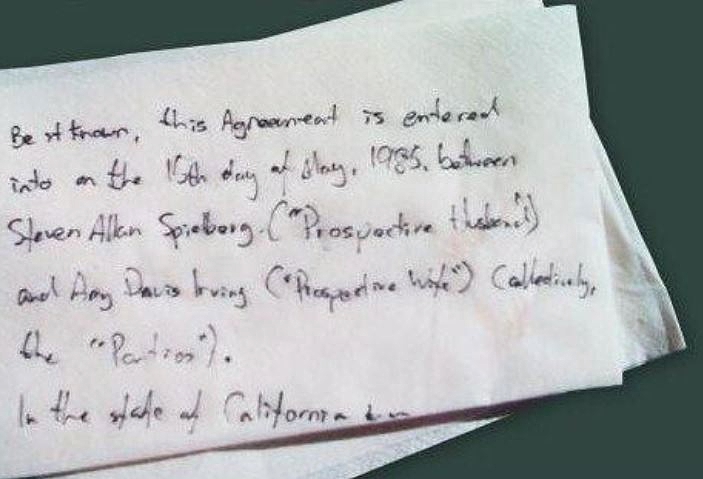 Be it known, this Agreement is entered
into on the 15th day of May, 1985, between
Steven Allan Spielberg ("Prospective Husband")
and Amy Davis Irving ("Prospective Wife") (collectively,
the "Parties").
In the state of California